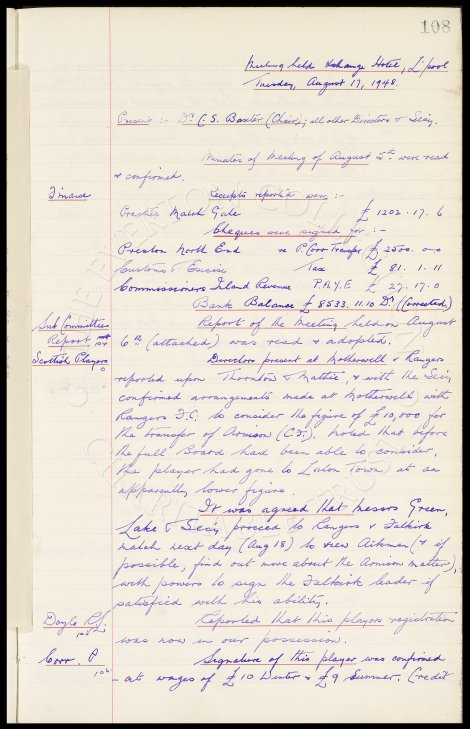 108
Meeting held Exchange Hotel, L'pool
Tuesday, August 17, 1948.
Present :- Dr. C. S. Baxter (Chair); all other Directors & Sec'y.
Minutes of Meeting of August 5th were read
& confirmed.
Finance Receipts reported were :-
Practice Match Gate £ 1202 . 17 . 6
Cheques were signed for :-
Preston North End re P. Corr Transfer £ 2500 . 0 - 0
Customs & Excise Tax £ 81 . 1 . 11
Commissioners Inland Revenue P.A.Y.E £ 27 . 17 . 0
Bank Balance £ 8533. 11. 10 Dr (Corrected)
Sub Committees Report of the Meeting held on August
Report 6th (attached) was read & adopted.
Scottish Players Directors present at Motherwell v Rangers
reported upon Thornton & Mathie, & with the Sec'y
confirmed arrangements made at Motherwell, with
Rangers F.C. to consider the figure of £10,000 for
the transfer of Arnison (C.F.). Noted that before
the full Board had been able to consider,
the player had gone to Luton Town, at an
apparently lower figure.
It was agreed that Messrs Green,
Lake & Sec'y proceed to Rangers v Falkirk
match next day (Aug 18) to view Aikman (& if
possible, find out more about the Arnison matter),
with powers to sign the Falkirk leader if
satisfied with his ability.
Doyle R/. Reported that this players registration
was now in our possession.
Corr. P Signature of this player was confirmed
106
- at wages of £10 Winter & £9 Summer. Credit